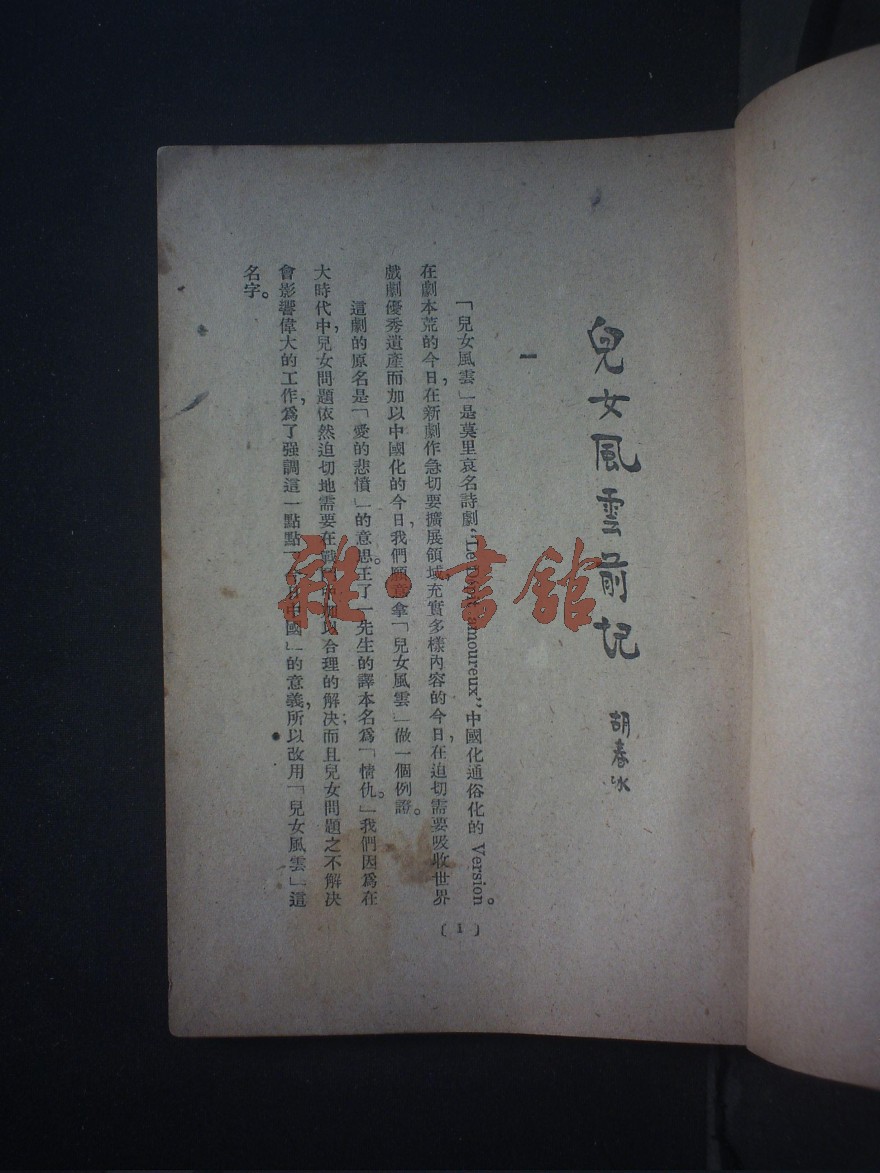 兒女風雲前記
胡春冰
一
「兒女風雲」是莫里哀名詩劇“Le amoureux”中國化通俗化的 Version。
在劇本荒的今日，在新劇作急切要擴展領域充實多樣內容的今日，在迫切需要吸收世界
戲劇優秀遺產而加以中國化的今日，我們願意拿「兒女風雲」做一個例證。
這劇的原名是「愛的悲憤」的意思。王了一先生的譯本名爲「情仇」。我們因爲在
大時代中，兒女問題依然迫切地需要在戰 加以合理的解决；而且兒女問題之不解决
會影響偉大的工作，爲了强調這一點點「 中國」的意義，所以改用「兒女風雲」這
名字。
〔1〕
雜·書館